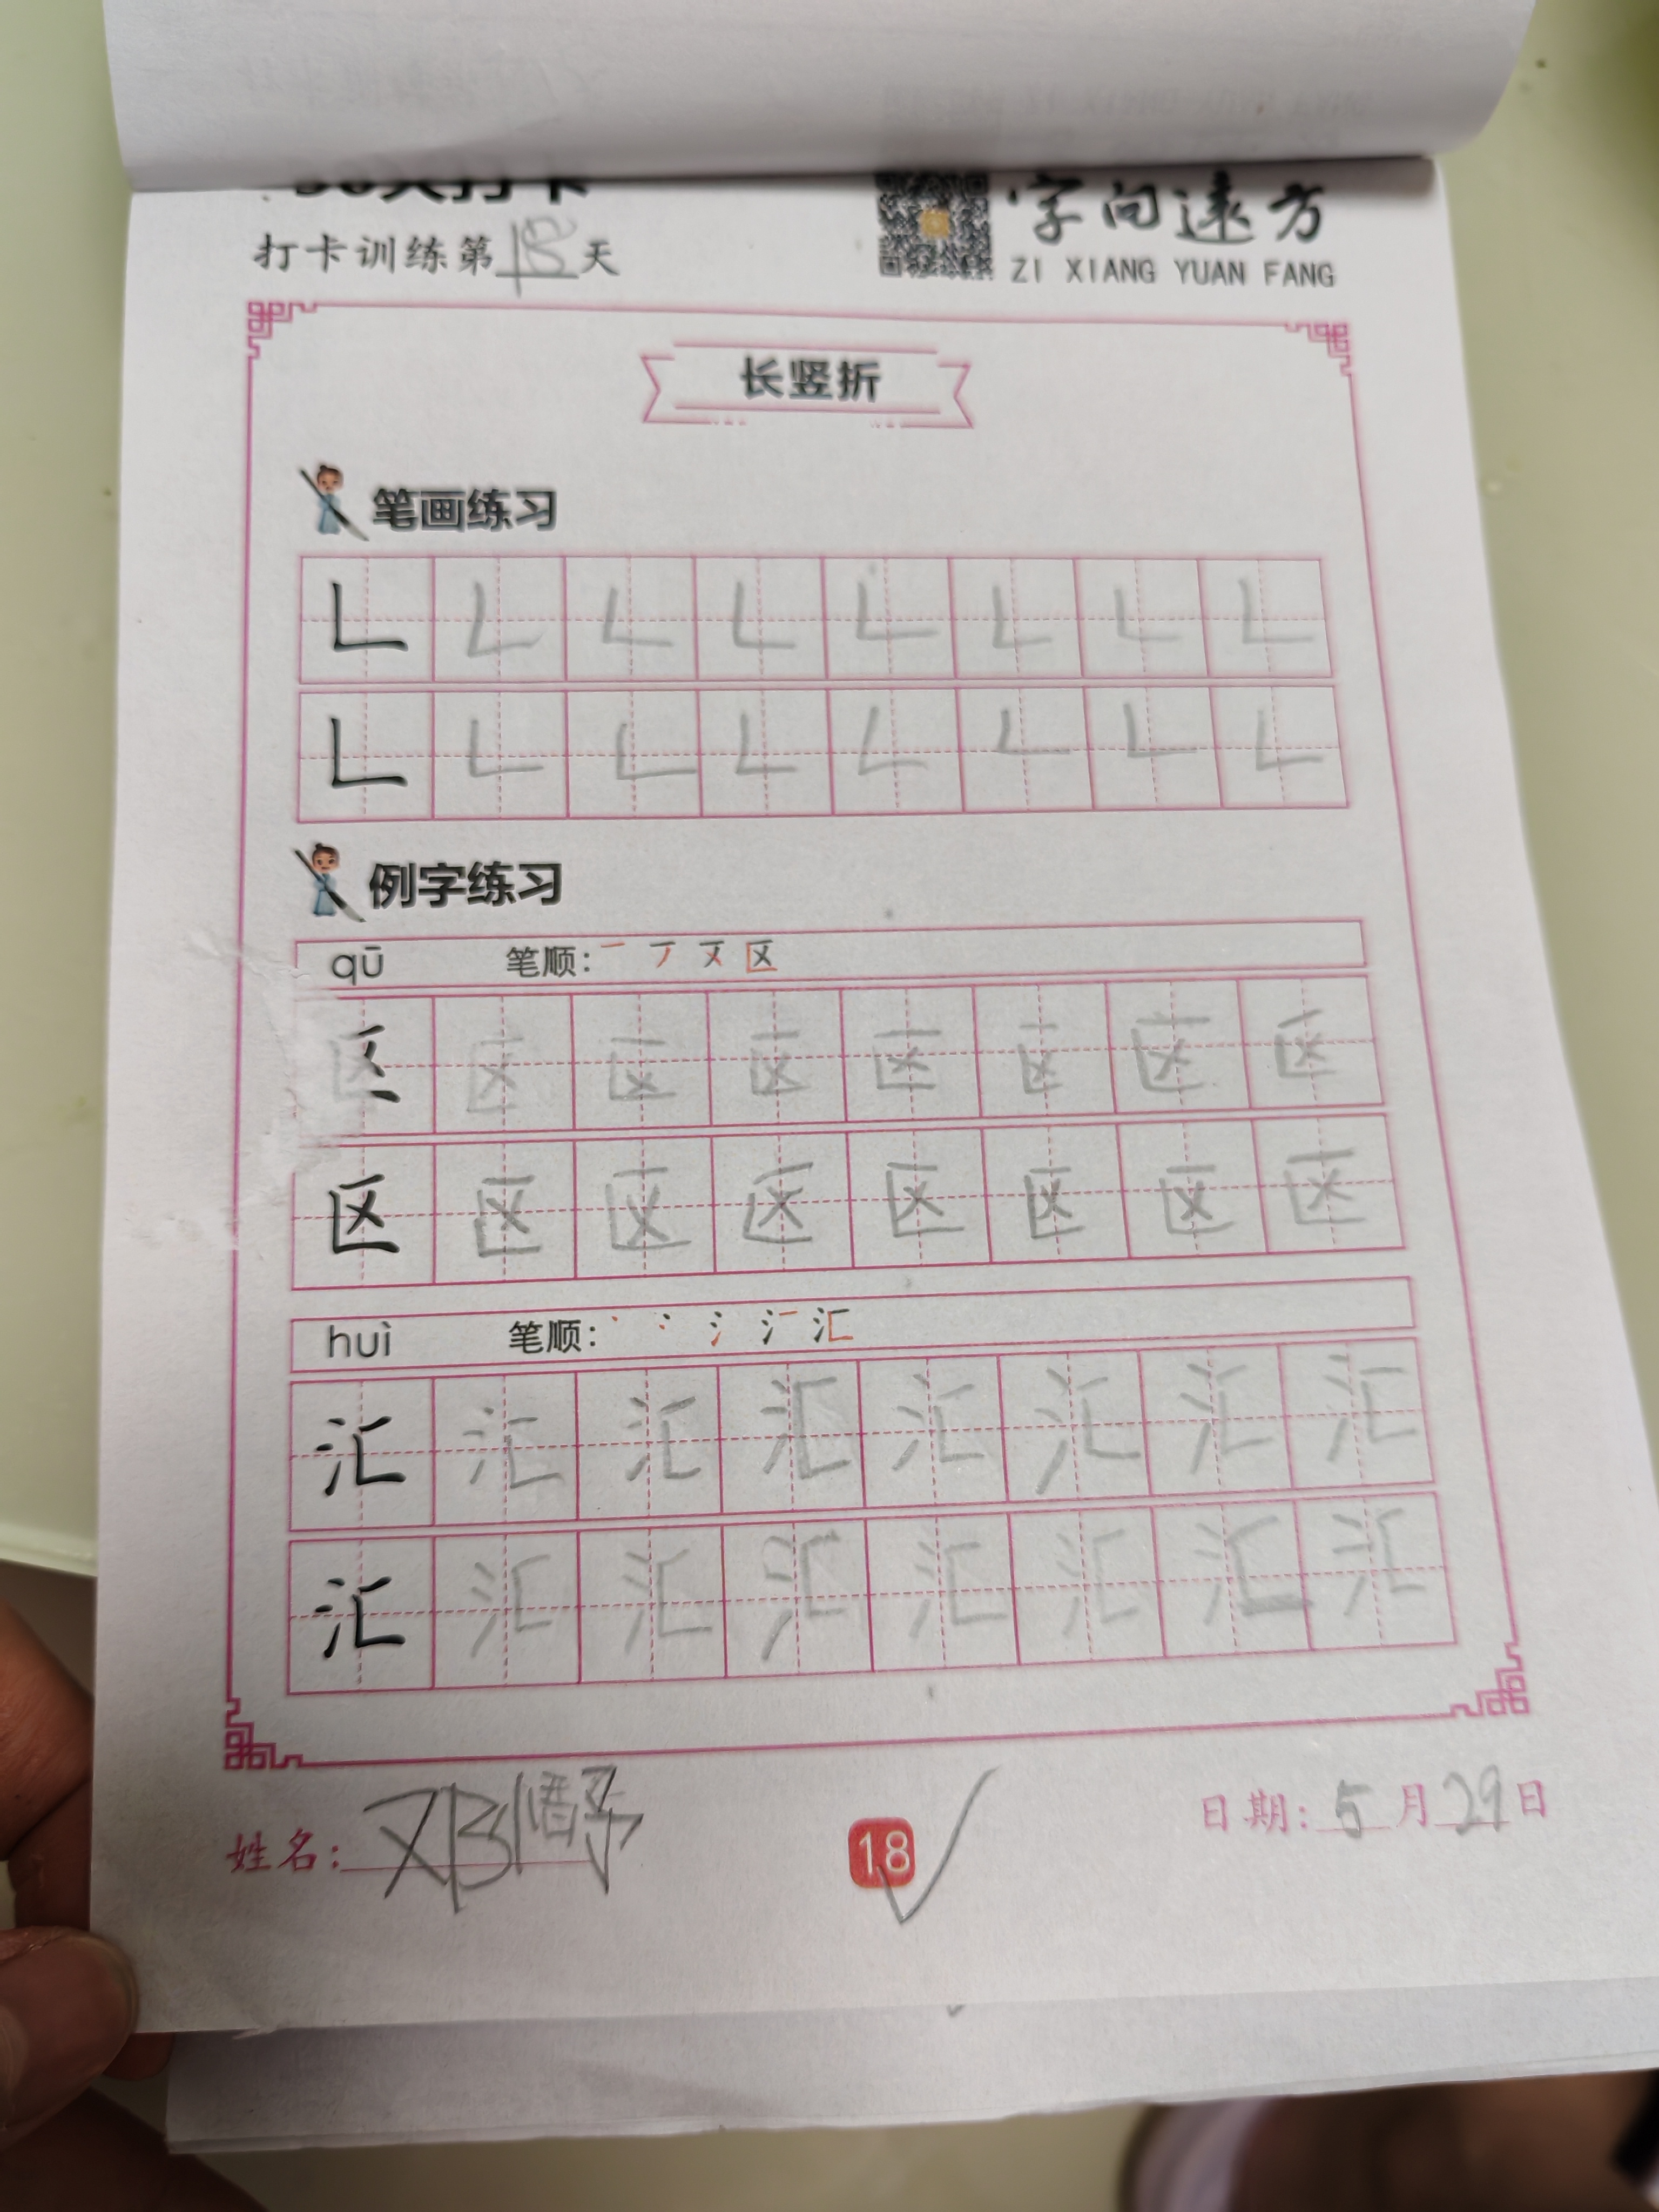 打卡训练第18天
字向远方
ZI XIANG YUAN FANG
长竖折
笔画练习
𠃊 𠃊 𠃊 𠃊 𠃊 𠃊 𠃊 𠃊
𠃊 𠃊 𠃊 𠃊 𠃊 𠃊 𠃊 𠃊
例字练习
qū 笔顺: 一 区
区 区 区 区 区 区 区 区
区 区 区 区 区 区 区 区
huì 笔顺: 丶 冫 氵 汇
汇 汇 汇 汇 汇 汇 汇 汇
汇 汇 汇 汇 汇 汇 汇 汇
姓名:
18
日期: 5月29日